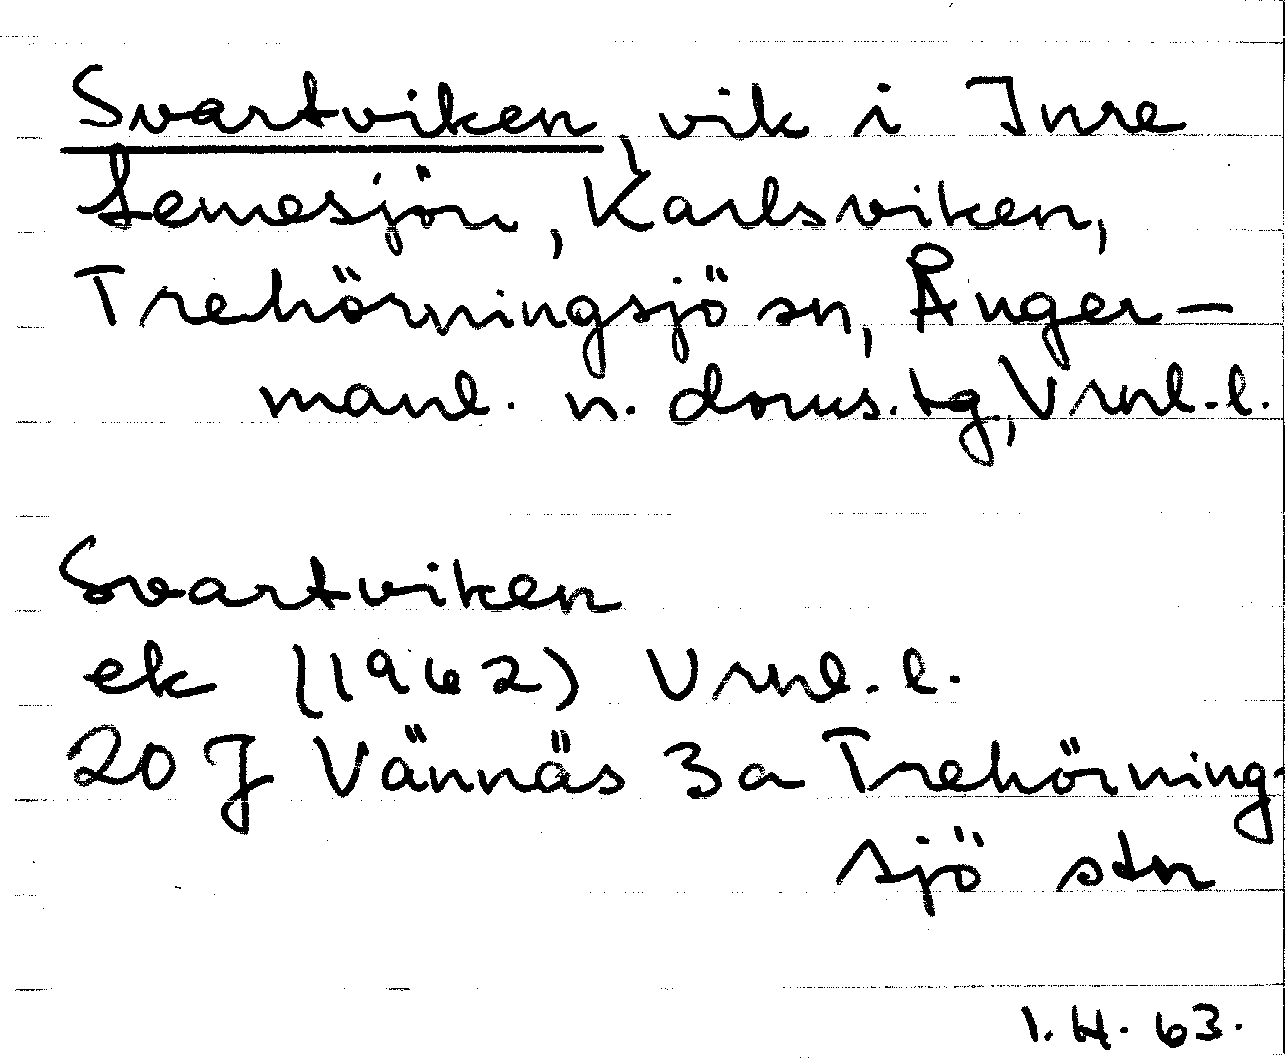 Svartviken, vik i Inre
Lemesjön, Karlsviken,
Trehörningsjö sn, Ånger-
manl. n. doms.tg, Vrnl.l.
Svartviken
ek (1962) Vrnl.l.
20 J Vännäs 3a Trehörning-
sjö stn
I.H. 63.